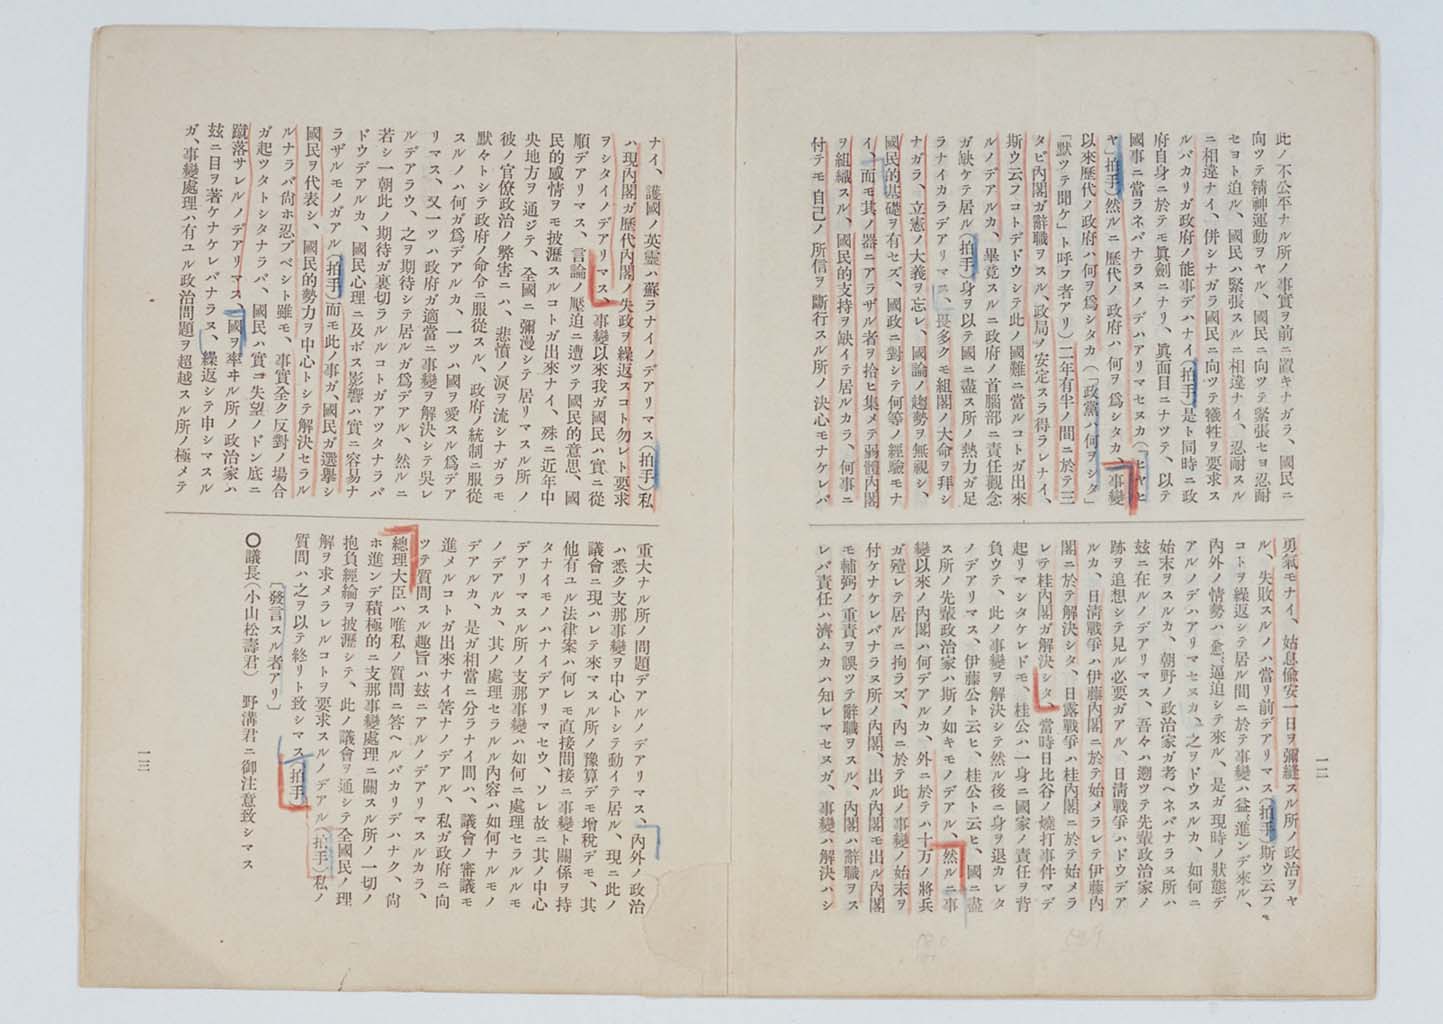 此ノ不公平ナル所ノ事實ヲ前ニ置キナガラ、國民ニ
向ツテ精神運動ヲヤル、國民ニ向ツテ緊張セヨ忍耐
セヨト迫ル、國民ハ緊張スルニ相違ナイ、忍耐スル
ニ相違ナイ、併シナガラ國民ニ向ツテ犧牲ヲ要求ス
ルバカリガ政府ノ能事デハナイ(拍手)是ト同時ニ政
府自身ニ於テモ眞劍ニナリ、眞面目ニナツテ、以テ
國事ニ當ラネバナラヌノデハアリマセヌカ(「ヒヤヒ
ヤ」拍手)然ルニ歴代ノ政府ハ何ヲ爲シタカ、事變
以來歴代ノ政府ハ何ヲ爲シタカ(「政黨ハ何ヲシタ」
「默ツテ聞ケ」ト呼フ者アリ)二年有半ノ間ニ於テ三
タビ内閣ガ辭職ヲスル、政局ノ安定スラ得ラレナイ、
斯ウ云フコトデドウシテ此ノ國難ニ當ルコトガ出來
ルノデアルカ、畢竟スルニ政府ノ首腦部ニ責任觀念
ガ缺ケテ居ル(拍手)身ヲ以テ國ニ盡ス所ノ熱力ガ足
ラナイカラデアリマス、畏多クモ組閣ノ大命ヲ拜シ
ナガラ、立憲ノ大義ヲ忘レ、國論ノ趨勢ヲ無視シ、
國民的基礎ヲ有セズ、國政ニ對シテ何等ノ經驗モナ
イ、而モ其ノ器ニアラザル者ヲ拾ヒ集メテ弱體内閣
ヲ組織スル、國民的支持ヲ缺イテ居ルカラ、何事ニ
付テモ自己ノ所信ヲ斷行スル所ノ決心モナケレバ
勇氣モナイ、姑息偸安一日ヲ彌縫スル所ノ政治ヲヤ
ル、失敗スルノハ當リ前デアリマス(拍手)斯ウ云フ
コトヲ繰返シテ居ル間ニ於テ事變ハ益〻進ンデ來ル、
内外ノ情勢ハ愈〻逼迫シテ來ル、是ガ現時ノ狀態デ
アルノデハアリマセヌカ、之ヲドウスルカ、如何ニ
始末ヲスルカ、朝野ノ政治家ガ考ヘネバナラヌ所ハ
玆ニ在ルノデアリマス、吾々ハ遡ツテ先輩政治家ノ
跡ヲ追想シテ見ル必要ガアル、日淸戰爭ハドウデア
ルカ、日淸戰爭ハ伊藤内閣ニ於テ始メラレテ伊藤内
閣ニ於テ解決シタ、日露戰爭ハ桂内閣ニ於テ始メラ
レテ桂内閣ガ解決シタ、當時日比谷ノ燒打事件マデ
起リマシタケレドモ、桂公ハ一身ニ國家ノ責任ヲ背
負ウテ、此ノ事變ヲ解決シテ然ル後ニ身ヲ退カレタ
ノデアリマス、伊藤公ト云ヒ、桂公ト云ヒ、國ニ盡
ス所ノ先輩政治家ハ斯ノ如キモノデアル、然ルニ事
變以來ノ内閣ハ何デアルカ、外ニ於テハ十万ノ將兵
ガ殪レテ居ルニ拘ラズ、内ニ於テ此ノ事變ノ始末ヲ
付ケナケレバナラヌ所ノ内閣、出ル内閣モ出ル内閣
モ輔弼ノ重責ヲ誤ツテ辭職ヲスル、内閣ハ辭職ヲス
レバ責任ハ濟ムカハ知レマセヌガ、事變ハ解決ハシ
一二
ナイ、護國ノ英靈ハ蘇ラナイノデアリマス(拍手)私
ハ現内閣ガ歴代内閣ノ失政ヲ繰返スコト勿レト要求
ヲシタイノデアリマス、事變以來我ガ國民ハ實ニ從
順デアリマス、言論ノ壓迫ニ遭ツテ國民的意思、國
民的感情ヲモ披瀝スルコトガ出來ナイ、殊ニ近年中
央地方ヲ通ジテ、全國ニ彌漫シテ居リマスル所ノ
彼ノ官僚政治ノ弊害ニハ、悲憤ノ淚ヲ流シナガラモ
默々トシテ政府ノ命令ニ服從スル、政府ノ統制ニ服從
スルノハ何ガ爲デアルカ、一ツハ國ヲ愛スル爲デア
リマス、又一ツハ政府ガ適當ニ事變ヲ解決シテ吳レ
ルデアラウ、之ヲ期待シテ居ルガ爲デアル、然ルニ
若シ一朝此ノ期待ガ裏切ラルルコトガアツタナラバ
ドウデアルカ、國民心理ニ及ボス影響ハ實ニ容易ナ
ラザルモノガアル(拍手)而モ此ノ事ガ、國民ガ選擧シ
國民ヲ代表シ、國民的勢力ヲ中心トシテ解決セラル
ルナラバ尙ホ忍ブベシト雖モ、事實全ク反對ノ場合
ガ起ツタトシタナラバ、國民ハ實ニ失望ノドン底ニ
蹴落サレルノデアリマス、國ヲ率ヰル所ノ政治家ハ
玆ニ目ヲ著ケナケレバナラヌ、繰返シテ申シマスル
ガ、事變處理ハ有ユル政治問題ヲ超越スル所ノ極メテ
重大ナル所ノ問題デアルノデアリマス、内外ノ政治
ハ悉ク支那事變ヲ中心トシテ動イテ居ル、現ニ此ノ
議會ニ現ハレテ來マスル所ノ豫算デモ增稅デモ、其
他有ユル法律案ハ何レモ直接間接ニ事變ト關係ヲ持
タナイモノハナイデアリマセウ、ソレ故ニ其ノ中心
デアリマスル所ノ支那事變ハ如何ニ處理セラルルモ
ノデアルカ、其ノ處理セラルル内容ハ如何ナルモノ
デアルカ、是ガ相當ニ分ラナイ間ハ、議會ノ審議モ
進メルコトガ出來ナイ筈ナノデアル、私ガ政府ニ向
ツテ質問スル趣旨ハ玆ニアルノデアリマスルカラ、
總理大臣ハ唯私ノ質問ニ答ヘルバカリデハナク、尙
ホ進ンデ積極的ニ支那事變處理ニ關スル所ノ一切ノ
抱負經綸ヲ披瀝シテ、此ノ議會ヲ通シテ全國民ノ理
解ヲ求メラレルコトヲ要求スルノデアル(拍手)私ノ
質問ハ之ヲ以テ終リト致シマス(拍手)
〔發言スル者アリ〕
〇議長(小山松壽君) 野溝君ニ御注意致シマス
一三